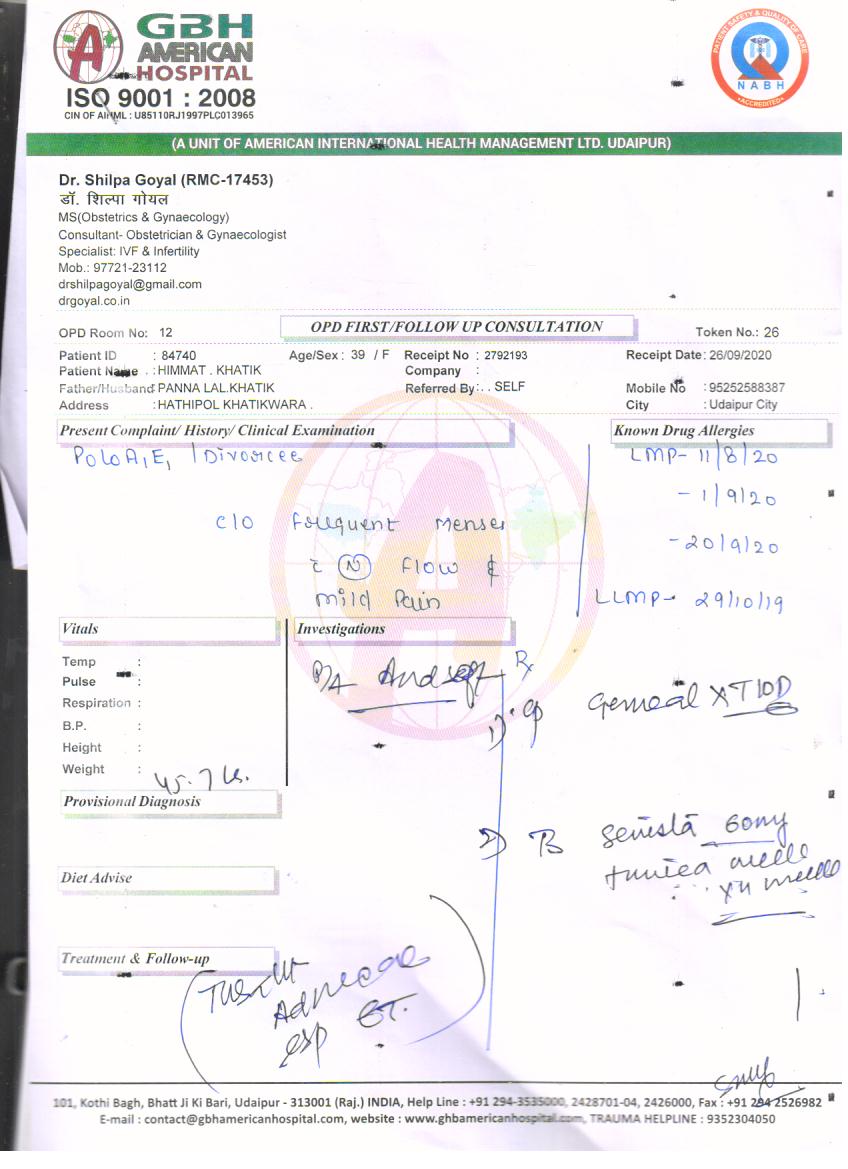 GBH
AMERICAN
HOSPITAL
ISO 9001 : 2008
CIN OF AIHML : U85110RJ1997PLC013965
PATIENT SAFETY & QUALITY OF CARE
NABH
ACCREDITED
(A UNIT OF AMERICAN INTERNATIONAL HEALTH MANAGEMENT LTD. UDAIPUR)
Dr. Shilpa Goyal (RMC-17453)
डॉ. शिल्पा गोयल
MS(Obstetrics & Gynaecology)
Consultant- Obstetrician & Gynaecologist
Specialist: IVF & Infertility
Mob.: 97721-23112
drshilpagoyal@gmail.com
drgoyal.co.in
OPD Room No: 12 OPD FIRST/FOLLOW UP CONSULTATION Token No.: 26
Patient ID : 84740 Age/Sex : 39 / F Receipt No : 2792193 Receipt Date: 26/09/2020
Patient Name . : HIMMAT . KHATIK Company :
Father/Husband: PANNA LAL.KHATIK Referred By: . . SELF Mobile No : 95252588387
Address : HATHIPOL KHATIKWARA . City : Udaipur City
Present Complaint/ History/ Clinical Examination Known Drug Allergies
P0L0A1E1 / Divorcee LMP- 11/8/20
- 1/9/20
C/O Frequent Menses
- 20/9/20
c̄ (N) Flow &
Mild Pain LLMP- 29/10/19
Vitals Investigations
Temp :
Pulse :
Respiration :
B.P. :
Height :
Weight : 45.7
P/A Rx
1) X 10D
Provisional Diagnosis
2) 60mg
Diet Advise
Treatment & Follow-up
101, Kothi Bagh, Bhatt Ji Ki Bari, Udaipur - 313001 (Raj.) INDIA, Help Line : +91 294-3535000, 2428701-04, 2426000, Fax : +91 294 2526982
E-mail : contact@gbhamericanhospital.com, website : www.ghbamericanhospital.com, TRAUMA HELPLINE : 9352304050